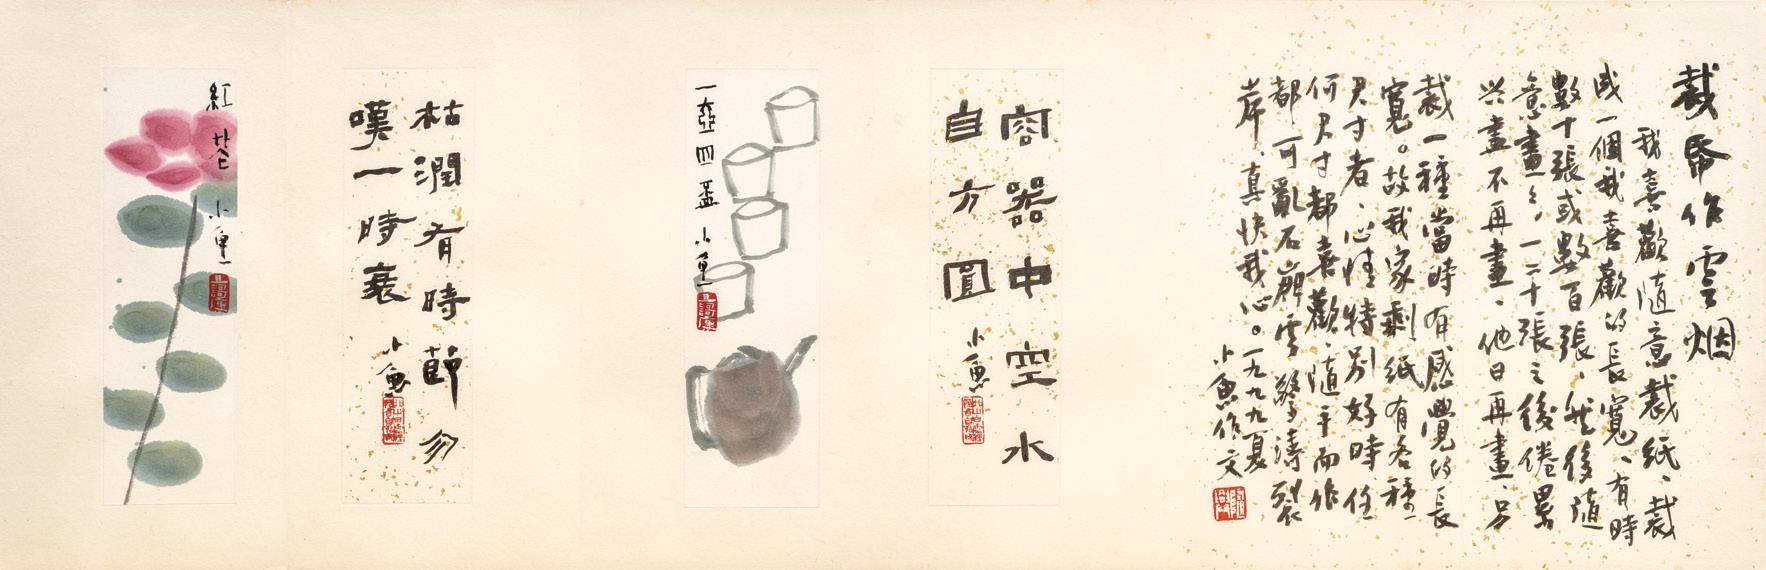 裁帋作雲烟
我喜歡隨意裁紙、裁
成一個我喜歡的長寬、有時
數十張或數百張、然後隨
意畫畫、一二十張之後倦累
兴盡不再畫、他日再畫、另
裁一種當時有感覺的長
寬。故我家剩紙有各種
尺寸者、心情特别好時任
何尺寸都喜歡、隨手而作
都可亂石崩雲驚濤裂
岸、真快我心。一九九九夏
小魚作文
容器中空水
自方圓
小魚
一壺四盃 小魚
枯潤有時節勿
嘆一時衰
小魚
紅花 小魚